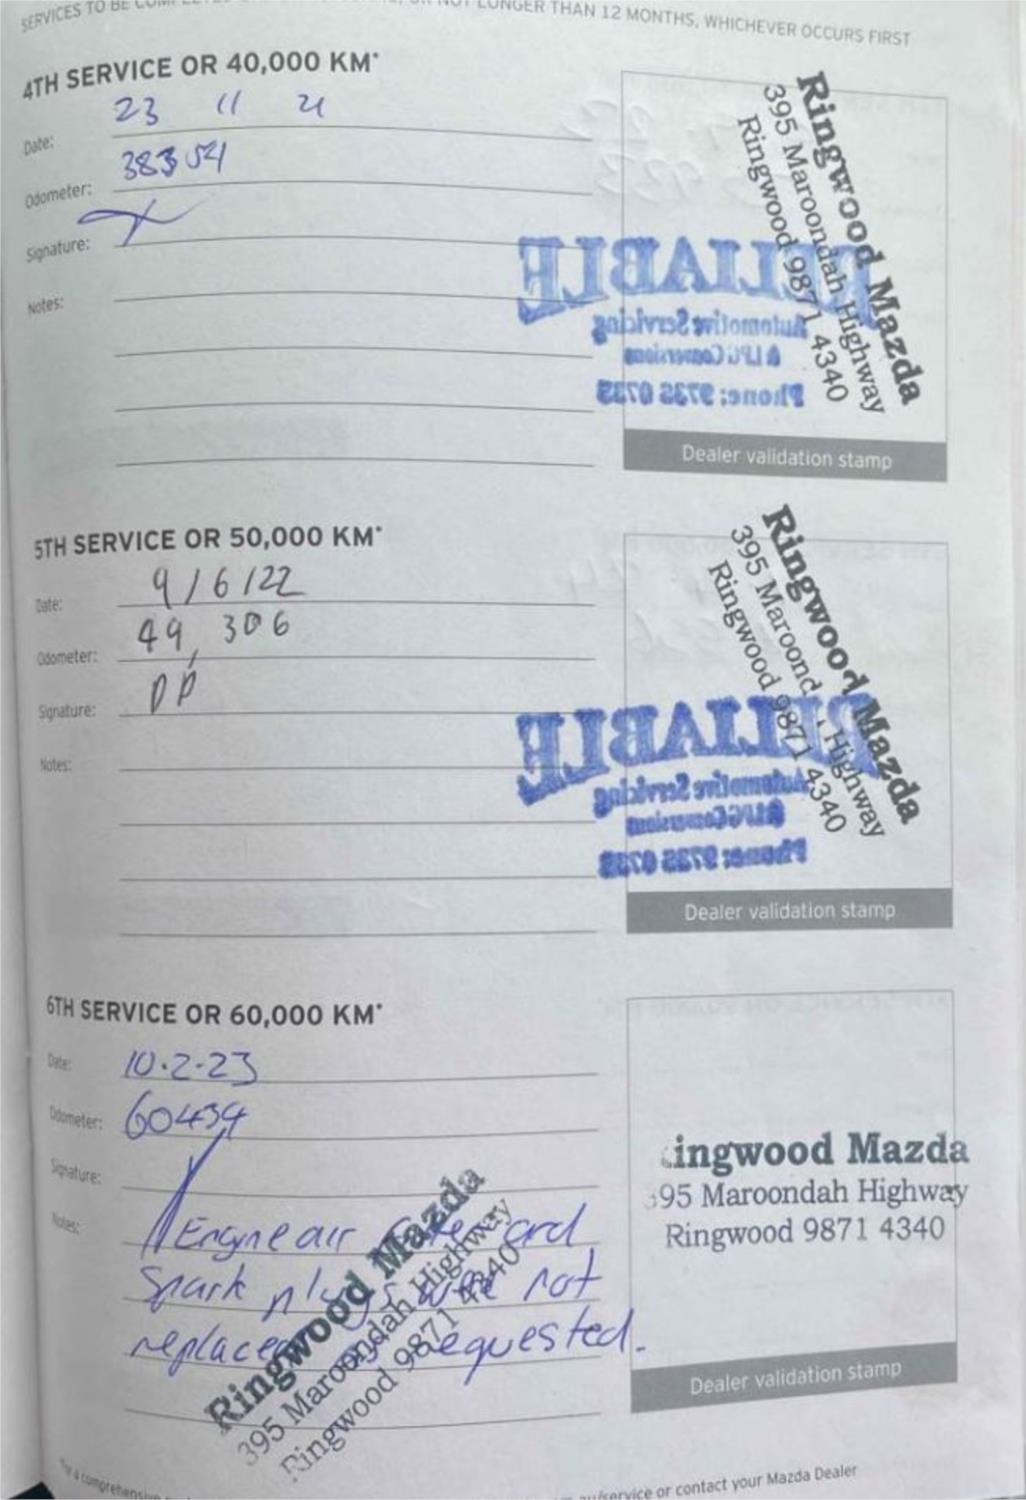 SERVICES TO BE
LONGER THAN 12 MONTHS, WHICHEVER OCCURS FIRST
4TH SERVICE OR 40,000 KM*
Date: 23 11 21
Odometer: 38354
Signature:
Notes:
Ringwood Mazda
395 Maroondah Highway
Ringwood 9871 4340
RELIABLE
Automotive Servicing
& LPG Conversions
Phone: 9735 0733
Dealer validation stamp
5TH SERVICE OR 50,000 KM*
Date: 9/6/22
Odometer: 49,306
Signature: DP
Notes:
Ringwood Mazda
395 Maroond Highway
Ringwood 9871 4340
RELIABLE
Automotive Servicing
& LPG Conversions
Phone: 9735 0733
Dealer validation stamp
6TH SERVICE OR 60,000 KM*
Date: 10.2.23
Odometer: 60434
Signature:
Notes: Engine air and
Spark plugs were not
replaced as requested.
Ringwood Mazda
395 Maroondah Highway
Ringwood 9871 4340
ingwood Mazda
95 Maroondah Highway
Ringwood 9871 4340
Dealer validation stamp
a comprehensive
/service or contact your Mazda Dealer